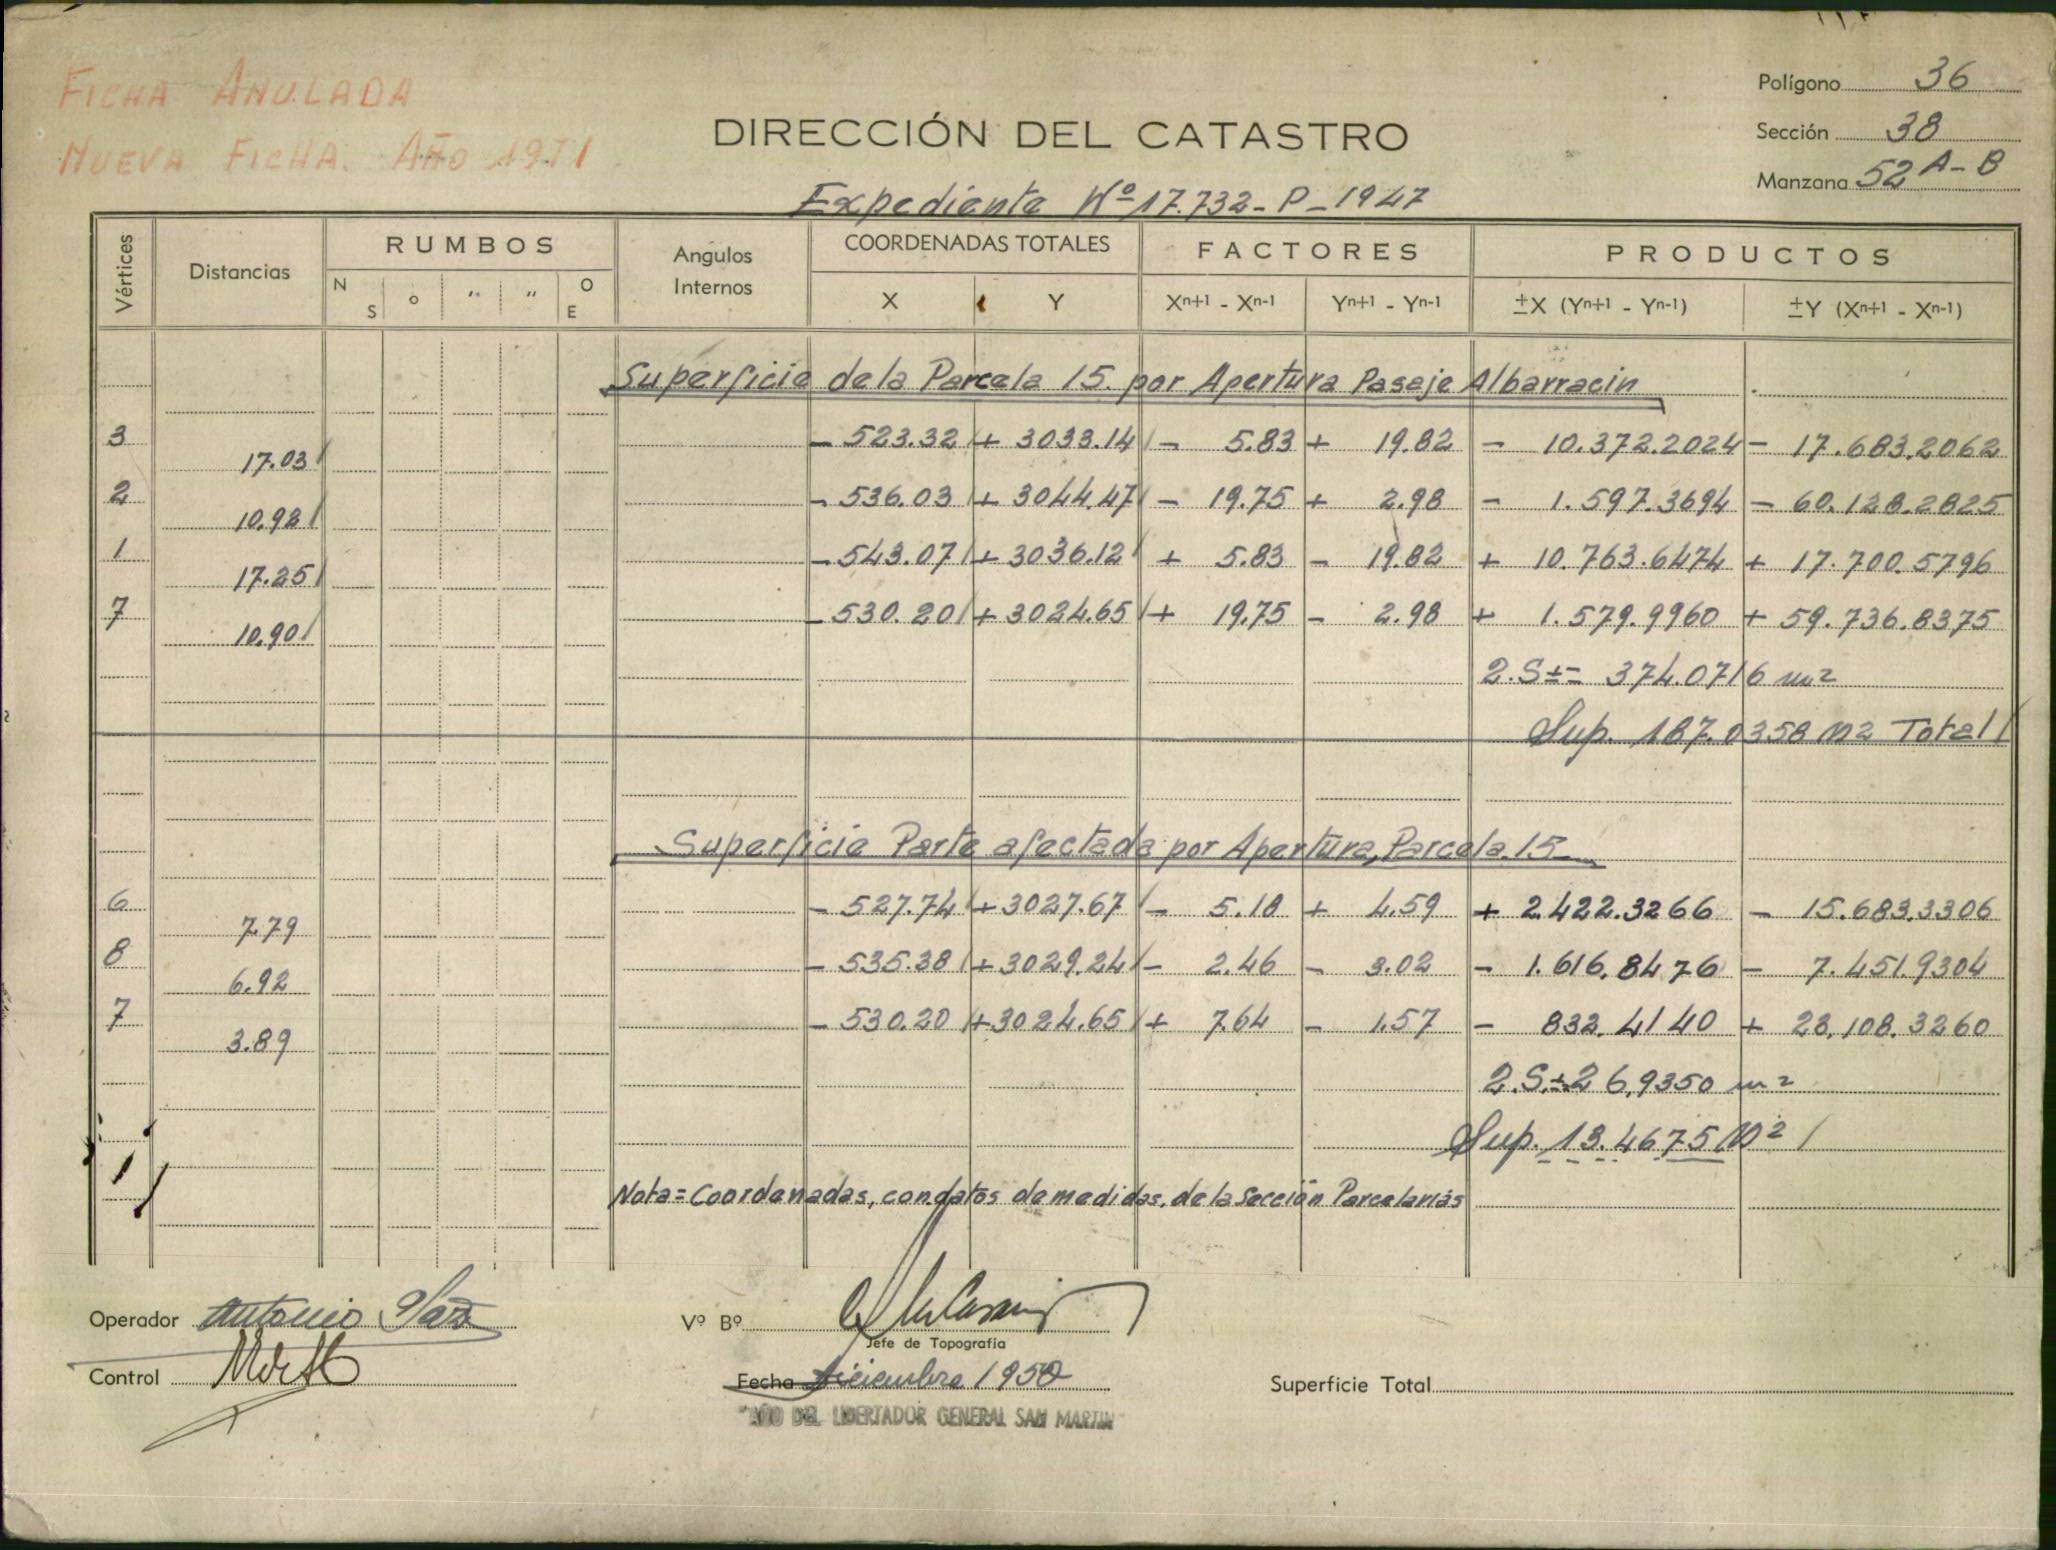 FICHA ANULADA
NUEVA FICHA. AÑO 1971
Polígono 36
Sección 38
Manzana 52 A-B
DIRECCIÓN DEL CATASTRO
Expediente Nº 17.732-P-1947
Vértices Distancias RUMBOS Angulos Internos COORDENADAS TOTALES FACTORES PRODUCTOS
N S o ´´ ´´ O E X Y Xn+1 - Xn-1 Yn+1 - Yn-1 ±X (Yn+1 - Yn-1) ±Y (Xn+1 - Xn-1)
Superficie de la Parcela 15. por Apertura Pasaje Albarracin
3 - 523.32 + 3033.14 - 5.83 + 19.82 - 10.372.2024 - 17.683.2062
17.03
2 - 536.03 + 3044.47 - 19.75 + 2.98 - 1.597.3694 - 60.128.2825
10.92
1 - 543.07 + 3036.12 + 5.83 - 19.82 + 10.763.6474 + 17.700.5796
17.25
7 - 530.20 + 3024.65 + 19.75 - 2.98 + 1.579.9960 + 59.736.8375
10.90
2.S±= 374.0716 m2
Sup. 187.0358 m2 Total
Superficie Parte afectada por Apertura, Parcela 15
6 - 527.74 + 3027.67 - 5.18 + 4.59 + 2.422.3266 - 15.683.3306
7.79
8 - 535.38 + 3029.24 - 2.46 - 3.02 - 1.616.8476 - 7.451.9304
6.92
7 - 530.20 + 3024.65 + 7.64 - 1.57 - 832.4140 + 23.108.3260
3.89
2.S.± 26,9350 m2
Sup. 13.4675 m2
Nota = Coordenadas, con datos de medidas, de la Sección Parcelarias
Operador Antonio
Vº Bº
Jefe de Topografía
Control
Fecha Diciembre 1950
Superficie Total
"AÑO DEL LIBERTADOR GENERAL SAN MARTIN"